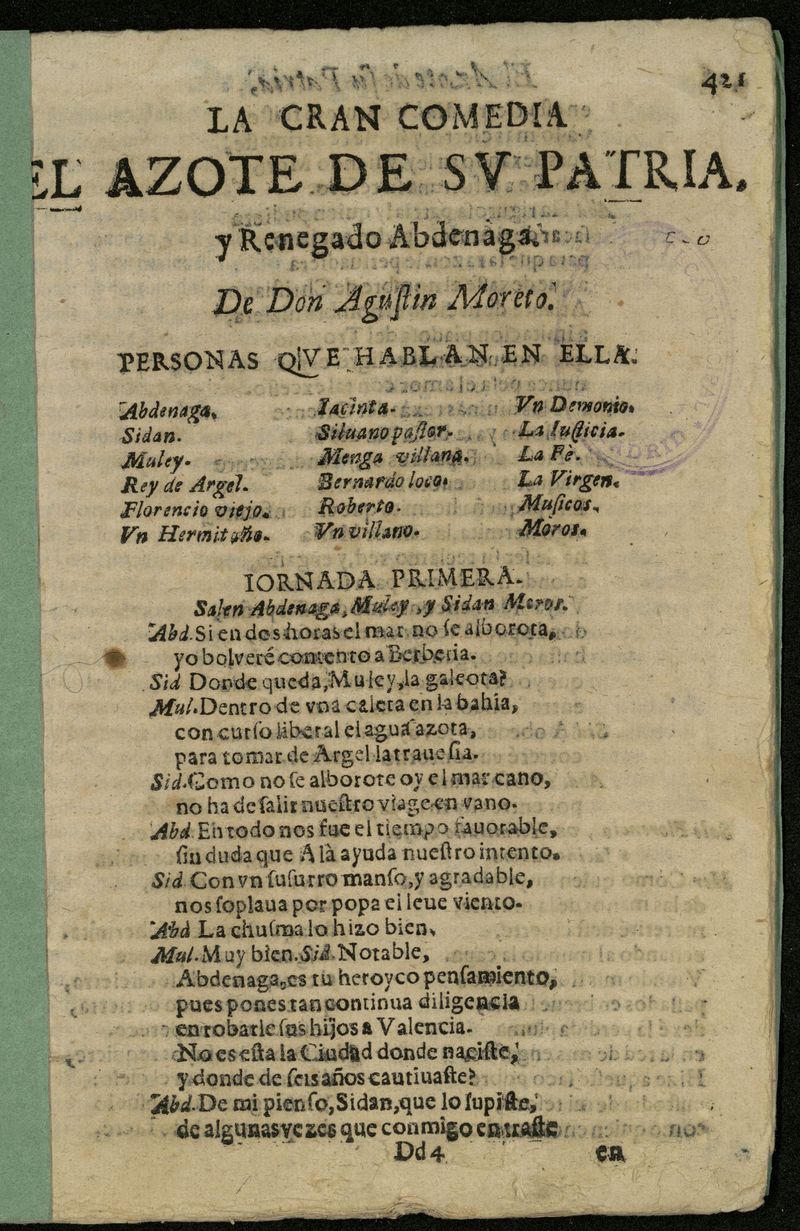 421
LA CRAN COMEDIA
EL AZOTE DE SV PATRIA,
y Renegado Abdenaga.
De Don Aguſtin Moreto.
PERSONAS QVE HABLAN EN ELLA.
Abdenaga. Iacinta. Vn Demonio.
Sidan. Siluano paſtor. La Iuſticia.
Muley. Menga villana. La Fè.
Rey de Argel. Bernardo loco. La Virgen.
Florencio viejo. Roberto. Muſicos.
Vn Hermitaño. Vn villano. Moros.
IORNADA PRIMERA.
Salen Abdenaga, Muley, y Sidan Moros.
Abd. Si en dos horas el mar no ſe alborota,
yo bolveré contento a Berberia.
Sid Donde queda, Muley, la galeota?
Mul. Dentro de vna caleta en la bahia,
con curſo liberal el agua azota,
para tomar de Argel la traueſia.
Sid. Como no ſe alborote oy el mar cano,
no ha de ſalir nueſtro viage en vano.
Abd En todo nos fue el tiempo fauorable,
ſin duda que Alà ayuda nueſtro intento.
Sid Con vn ſuſurro manſo, y agradable,
nos ſoplaua por popa el leue viento.
Abd La chuſma lo hizo bien.
Mul. Muy bien. Sid. Notable,
Abdenaga, es tu heroyco penſamiento,
pues pones tan continua diligencia
en robarle ſus hijos a Valencia.
No es eſta la Ciudad donde naciſte,
y donde de ſeis años cautiuaſte?
Abd. De mi pienſo, Sidan, que lo ſupiſte,
de algunas vezes que conmigo entraſte
Dd 4 en